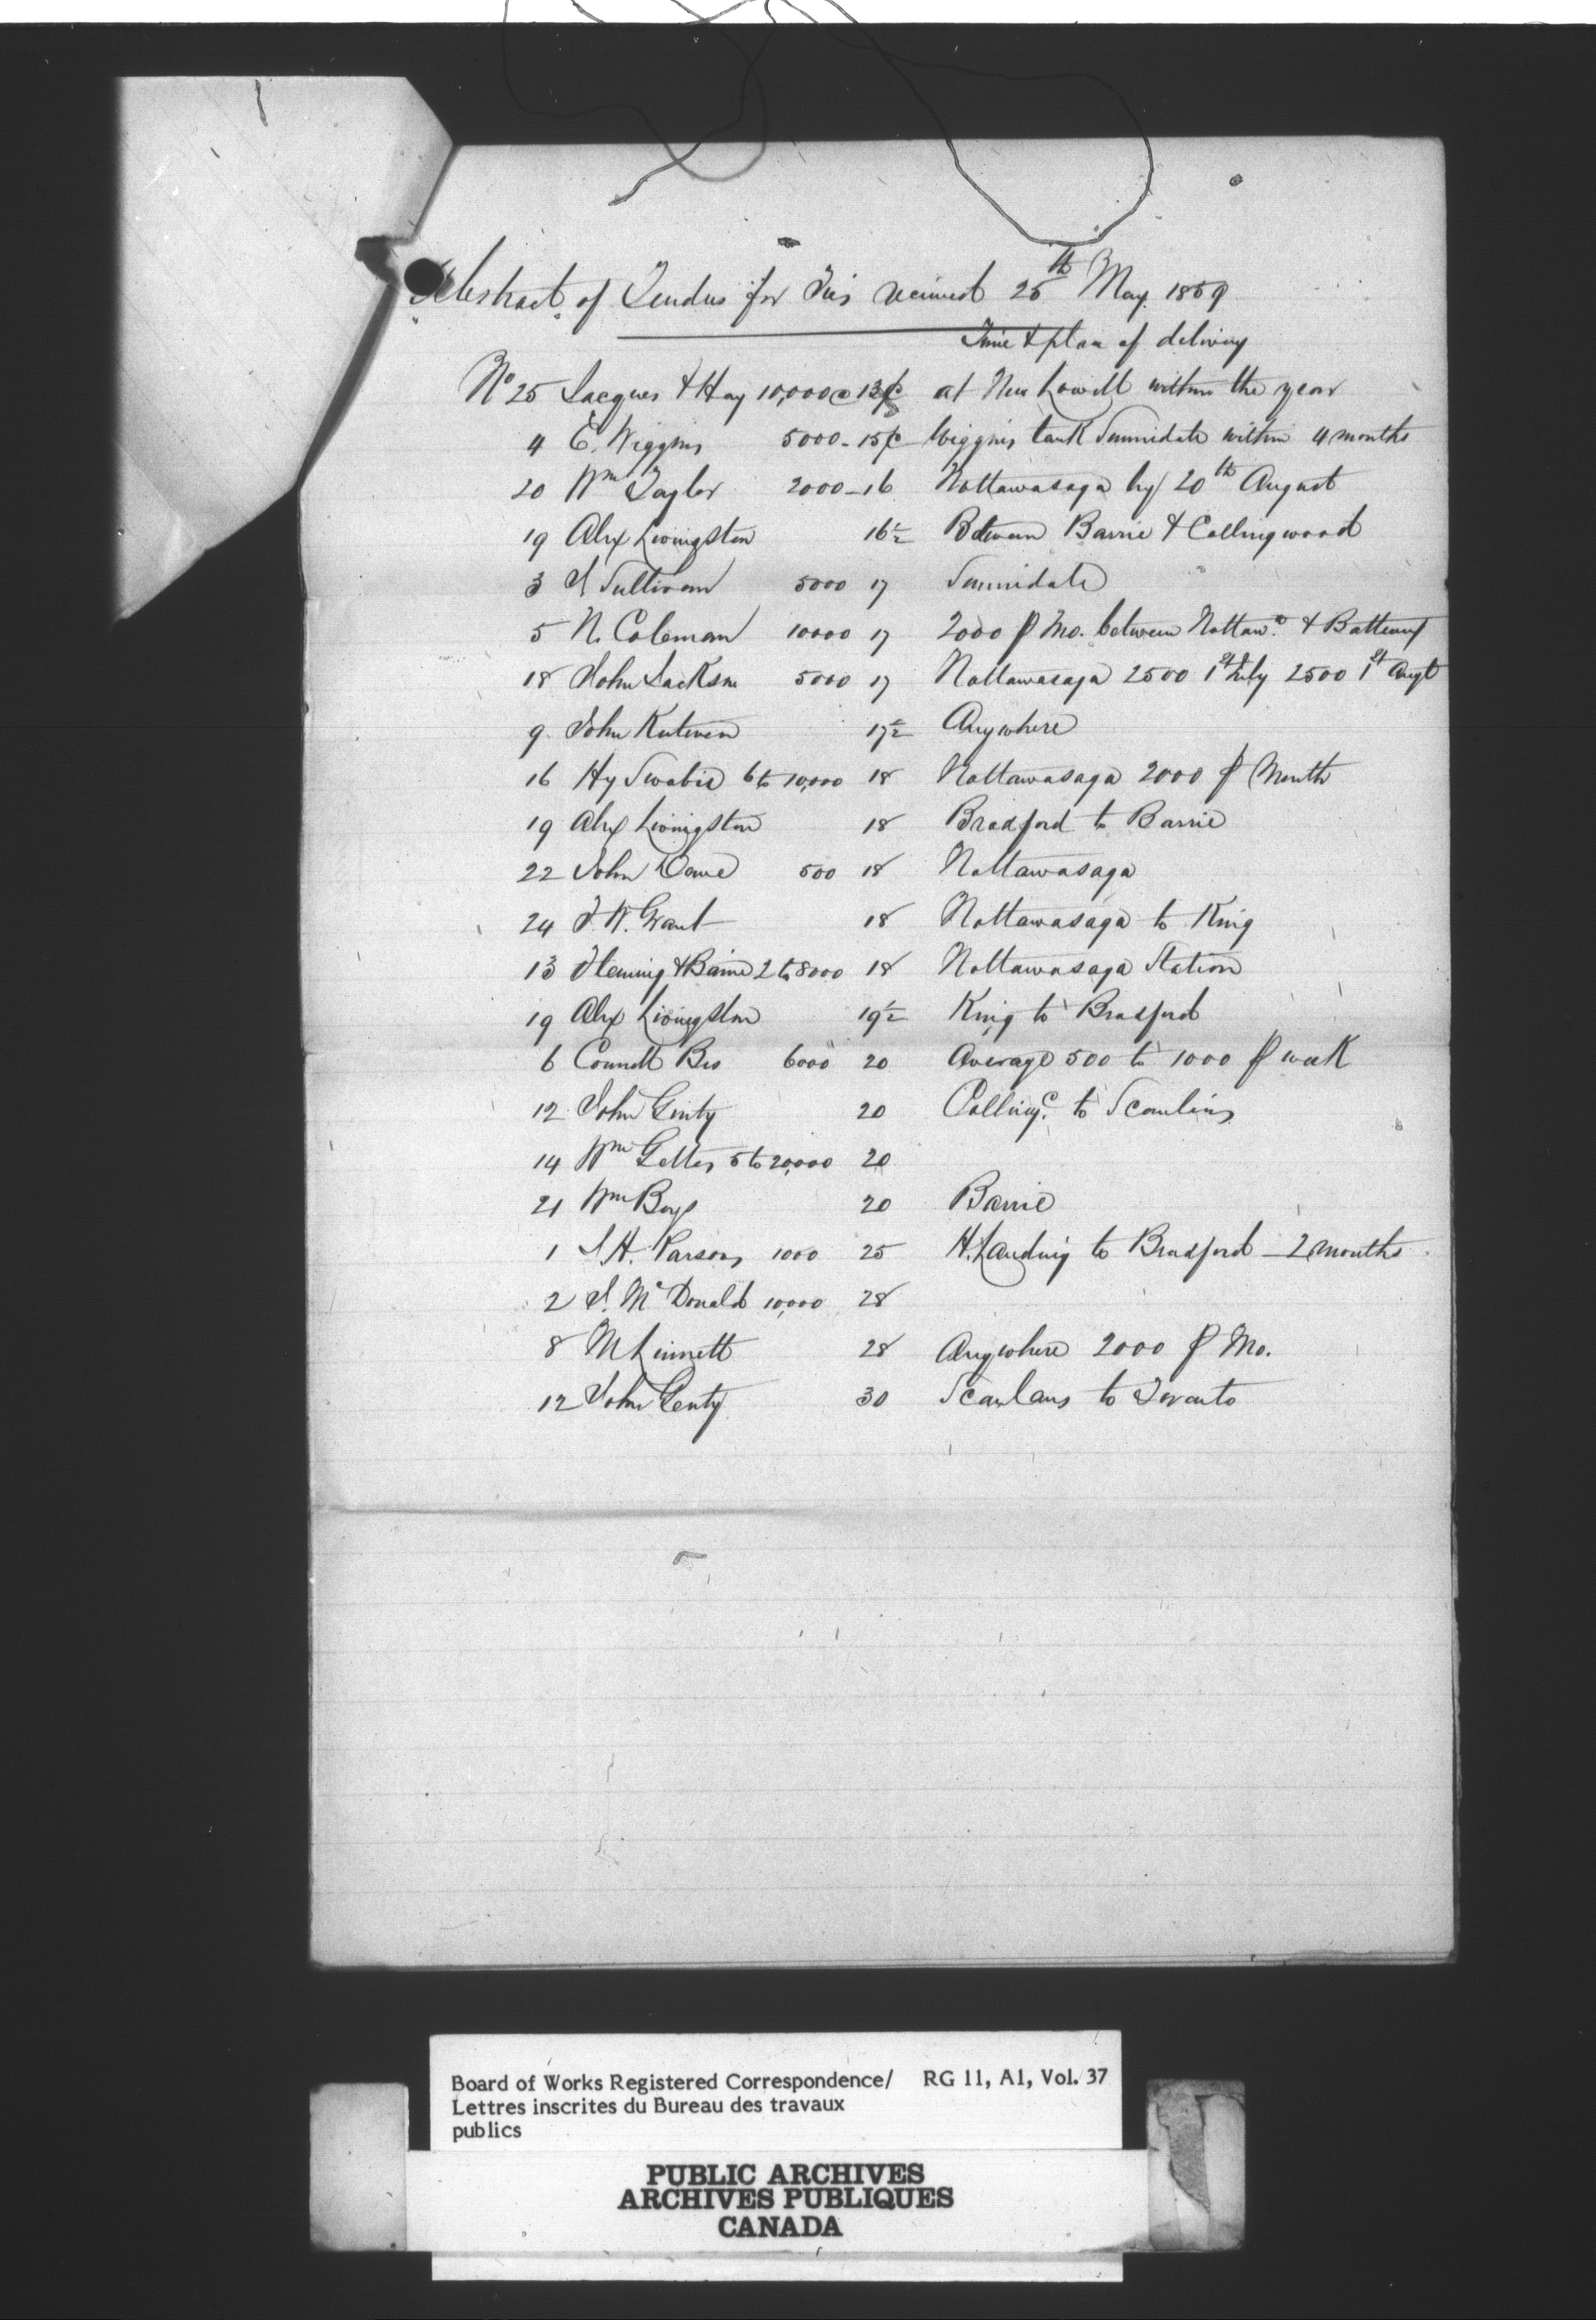 Abstract of Tenders for Ties received 25th May 1859
Time & place of delivery
No 25 Jacques & Hay 10,000 @ 13¢ at New Lowell within the year
4 E. Wiggins 5000 - 15¢ Wiggins tank Sunnidale within 4 months
20 Wm Taylor 2000 - 16 Nottawasaga by 20th August
19 Alex Livingston 16½ Between Barrie & Collingwood
3 J Sullivan 5000 17 Sunnidale
5 N. Coleman 10000 17 2000 ⅌ Mo. between Nottawa &
18 John Jackson 5000 17 Nottawasaga 2500 1st July 2500 1st Augt
9 John 17½ Anywhere
16 Hy 6 to 10,000 18 Nottawasaga 2000 ⅌ Month
19 Alex Livingston 18 Bradford to Barrie
22 John 500 18 Nottawasaga
24 J. W. Grant 18 Nottawasaga to King
13 Fleming & 2 to 8000 18 Nottawasaga Station
19 Alex Livingston 19½ King to Bradford
6 Bros 6000 20 Average 500 to 1000 ⅌ week
12 John Ginty 20 to Scanlans
14 Wm 5 to 20,000 20
21 Wm Boys 20 Barrie
1 J. H. Parsons 1000 25 H. Landing to Bradford - 2 months
2 J. McDonald 10,000 28
8 M 28 Anywhere 2000 ⅌ Mo.
12 John Genty 30 Scanlans to Toronto
Board of Works Registered Correspondence/ RG 11, A1, Vol. 37
Lettres inscrites du Bureau des travaux
publics
PUBLIC ARCHIVES
ARCHIVES PUBLIQUES
CANADA